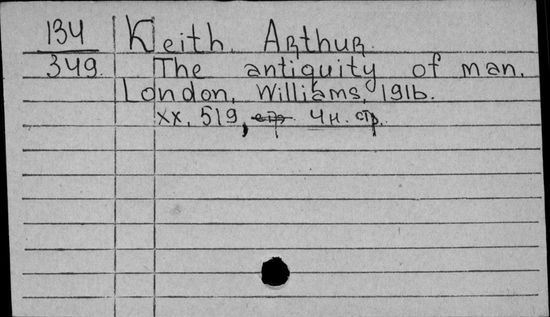 134 Keith, Arthur.
349. The antiquity of man.
London, Williams, 1916.
xx, 519, стр 4 н. стр.